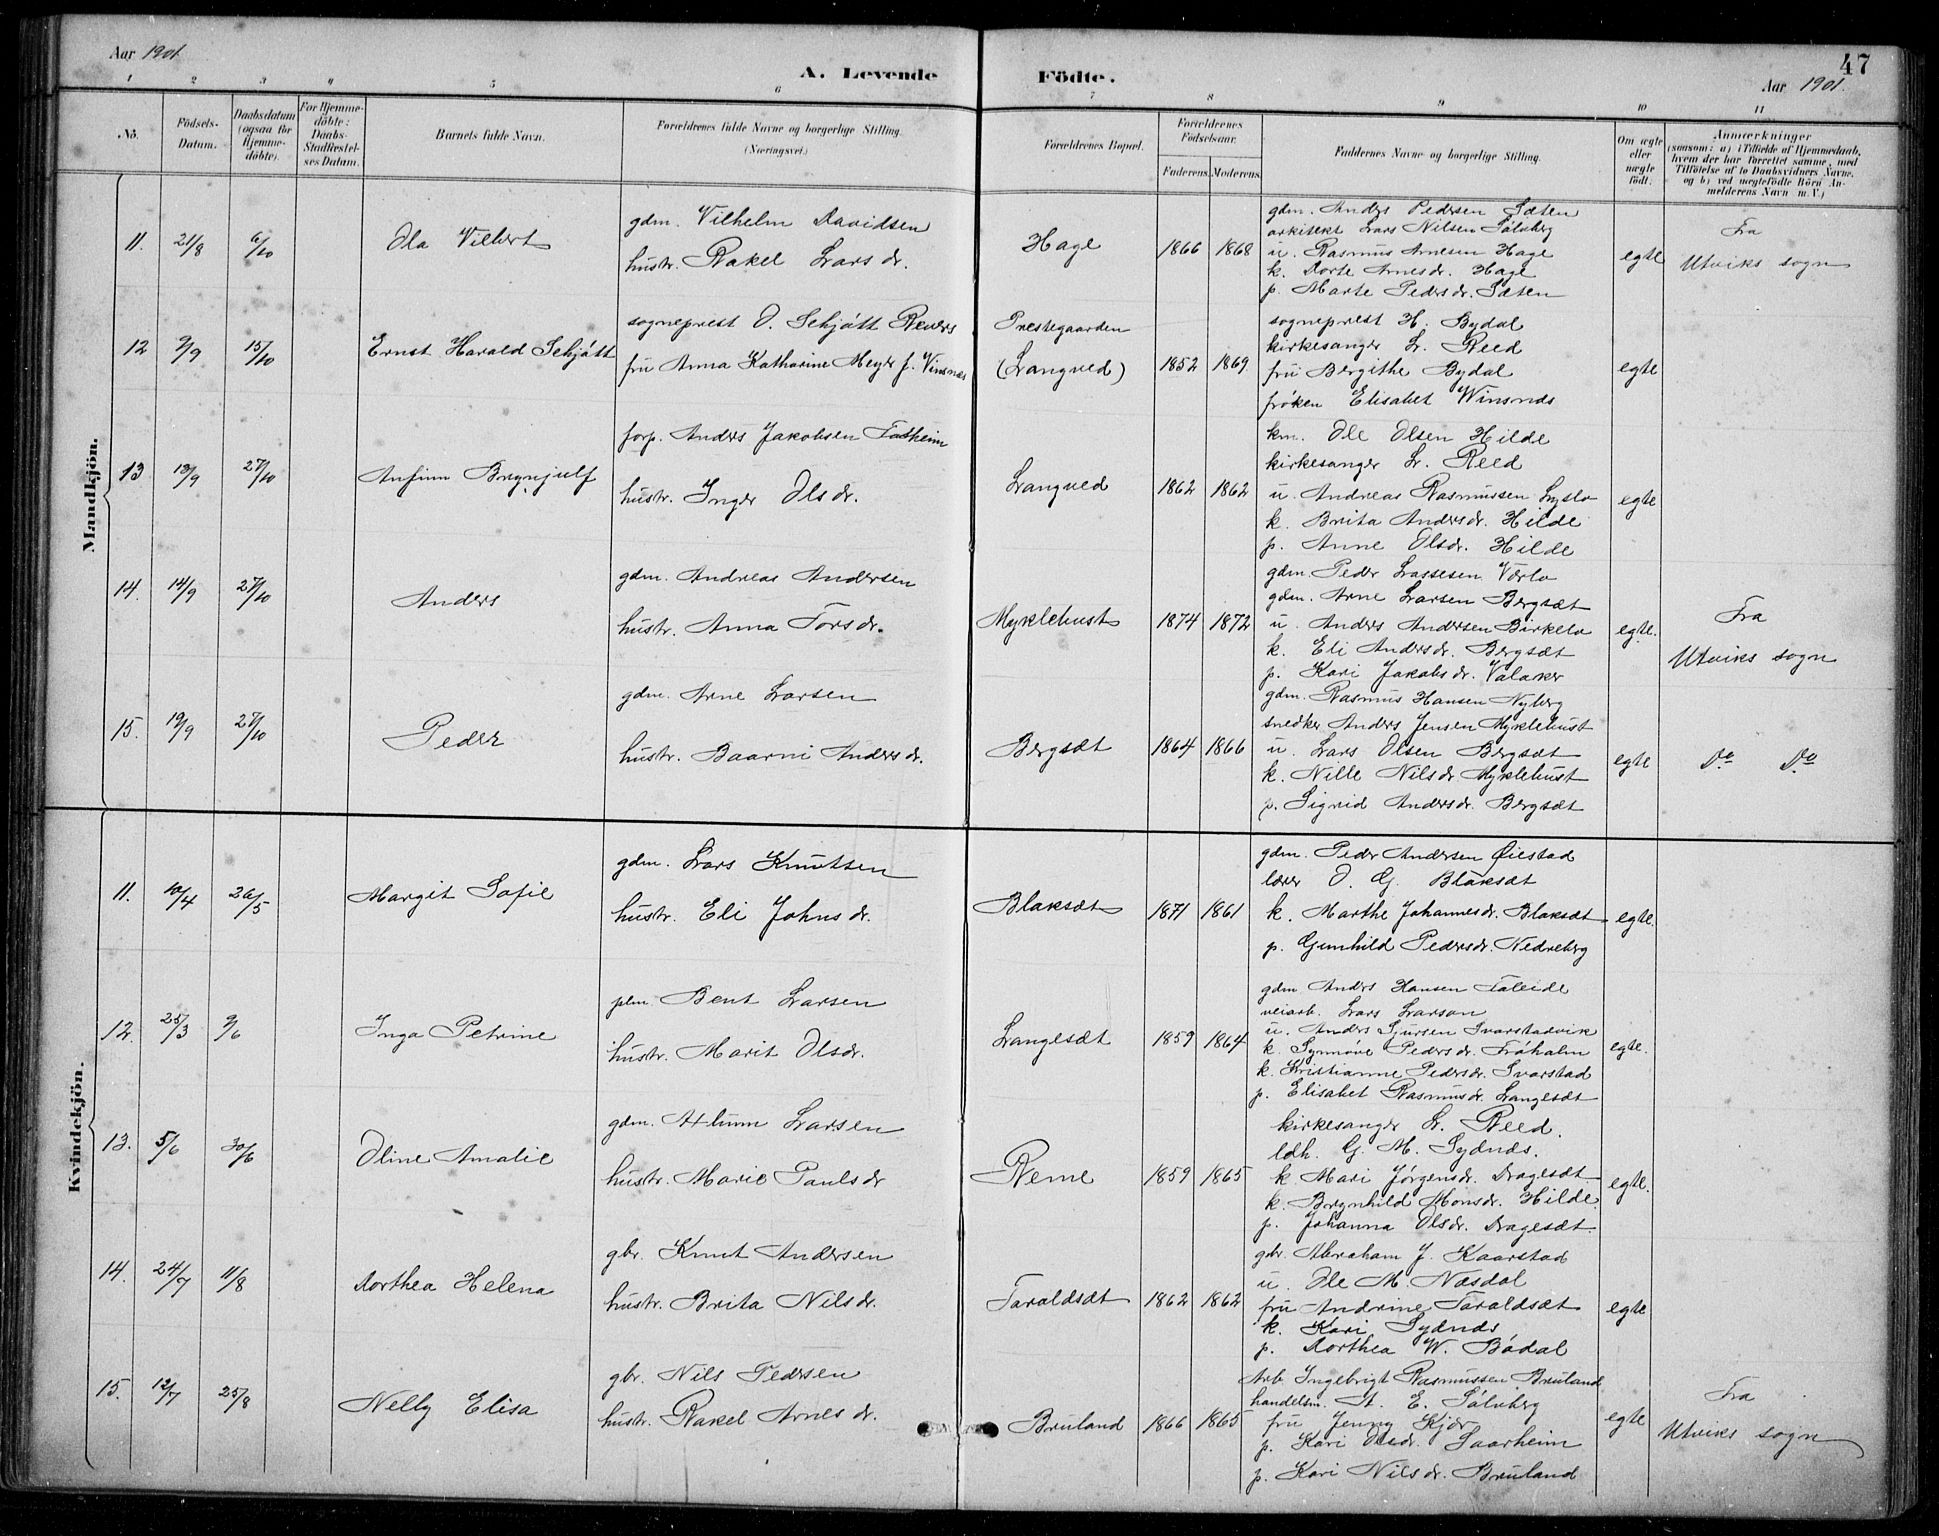 Aar 1901.
A. Levende
Födte.
47
Aar 1901.
1 2 3 4 5 6 7 8 9 10 11
No.
Födsels-Datum.
Daabsdatum (ogsaa for Hjemmedöbte).
For Hjemmedöbte: Daabs-Stadfæstelses Datum.
Barnets fulde Navn.
Forældrenes fulde Navne og borgerlige Stilling. (Næringsvei.)
Forældrenes Bopæl.
Forældrenes Födselsaar.
Faderens. Moderens.
Faddernes Navne og borgerlige Stilling.
Om ægte eller uægte födt.
Anmærkninger
(saasom: a) i Tilfælde af Hjemmedaab,
hvem der har forrettet samme, med
Tilföielse af to Daabsvidners Navne.
og b) ved uægtefödte Börn Anmelderens Navn m. V.)
Mandkjön.
11. 21/8 6/10 Ola Vilbert
gdm. Vilhelm Davidsen
hustr. Rakel Larsdr.
Hage 1866 1868
gdm. Anders Pedersen Sæten
arkitekt Lars Nilsen Sølvberg
u. Rasmus Arnesen Hage
k. Dorte Arnesdr. Hage
p. Marte Pedersdr. Sæten
egte
Fra
Utviks sogn
12 9/9 15/10 Ernst Harald Schjött
sogneprest O. Schjött Revers
fru Anna Katharine Meyer f. Vinsnæs
Prestegaarden
(Langved) 1852 1869
sogneprest H. Bydal
kirkesanger L. Reed
fru Bergithe Bydal
fröken Elisabet Winsnæs
egte
13 13/9 27/10 Anfinn Brynjulf
forp. Anders Jakobsen Tatheim
hustr. Inger Olsdr.
Langved 1862 1862
km. Ole Olsen Hilde
kirkesanger L. Reed
u. Andreas Rasmussen Lyslo
k. Brita Andersdr. Hilde
p. Anne Olsdr. Hilde
egte
14. 14/9 27/10 Anders
gdm. Andreas Andersen
hustr. Anna Torsdr.
Myklebust 1874 1872
gdm. Peder Lassesen Værlo
gdm. Arne Larsen Bergsæt
u. Anders Andersen Birkelo
k. Eli Andersdr. Bergsæt
p. Kari Jakobsdr. Valaker
egte.
Fra
Utviks sogn
15. 19/9 27/10 Peder
gdm. Arne Larsen
hustr. Baarni Andersdr.
Bergsæt 1864 1866
gdm. Rasmus Hansen Nyberg
snedker Anders Jensen Myklebust
u. Lars Olsen Bergsæt
k. Nille Nilsdr. Myklebust
p. Sigrid Andersdr. Bergsæt
egte
Do Do
Kvindekjön.
11. 10/4 26/5 Margit Sofie
gdm. Lars Knutsen
hustr. Eli Johnsdr.
Blaksæt 1871 1861
gdm. Peder Andersen Øiestad
lærer O. G. Blaksæt
k. Marthe Johannesdr. Blaksæt
p. Gunhild Pedersdr. Nedreberg
egte.
12. 25/3 9/6 Inga Petrine
plm. Bent Larsen
hustr. Marit Olsdr.
Langesæt 1859 1864
gdm Anders Hansen Faleide
veiarb. Lars Larson
u. Anders Sjursen Svarstadvik
k. Synnöve Pedersdr. Fröholm
k. Kristianne Pedersdr. Svarstad
p. Elisabet Rasmusdr. Langesæt
egte.
13. 5/6 30/6 Oline Amalie
gdm. Atlum Larsen
hustr. Marie Paulsdr
Reme 1859 1865
kirkesanger L. Reed.
ldh. G. M. Sydnæs.
k Mari Jørgensdr. Dragesæt
k. Brynhild Monsdr. Hilde
p. Johanna Olsdr. Dragesæt.
egte.
14. 24/7 11/8 Dorthea Helena
gbr. Knut Andersen
hustr. Brita Nilsdr.
Taraldsæt 1862 1862
gbr. Abraham J. Kaarstad
u. Ole M. Næsdal
fru Andrine Taraldsæt
k. Kari Sydnæs
p. Dorthea W. Bödal
egte
15. 12/7 25/8 Nelly Elisa
gbr. Nils Pedersen
hustr. Rakel Arnesdr.
Bruland 1866 1865
Arb Ingebrigt Rasmussen Bruland
handelsm. A. E. Sölvberg
fru Jenny Kjær
p. Kari Olsdr. Saarheim
p. Kari Nilsdr. Bruland
egte
Fra
Utviks sogn